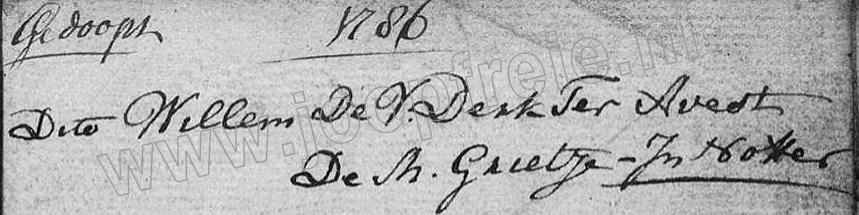 Gedoopt 1786
Dito Willem De V. Derk Ter Avest
De M. Grietje - In Notter
www.joopfreie.nl